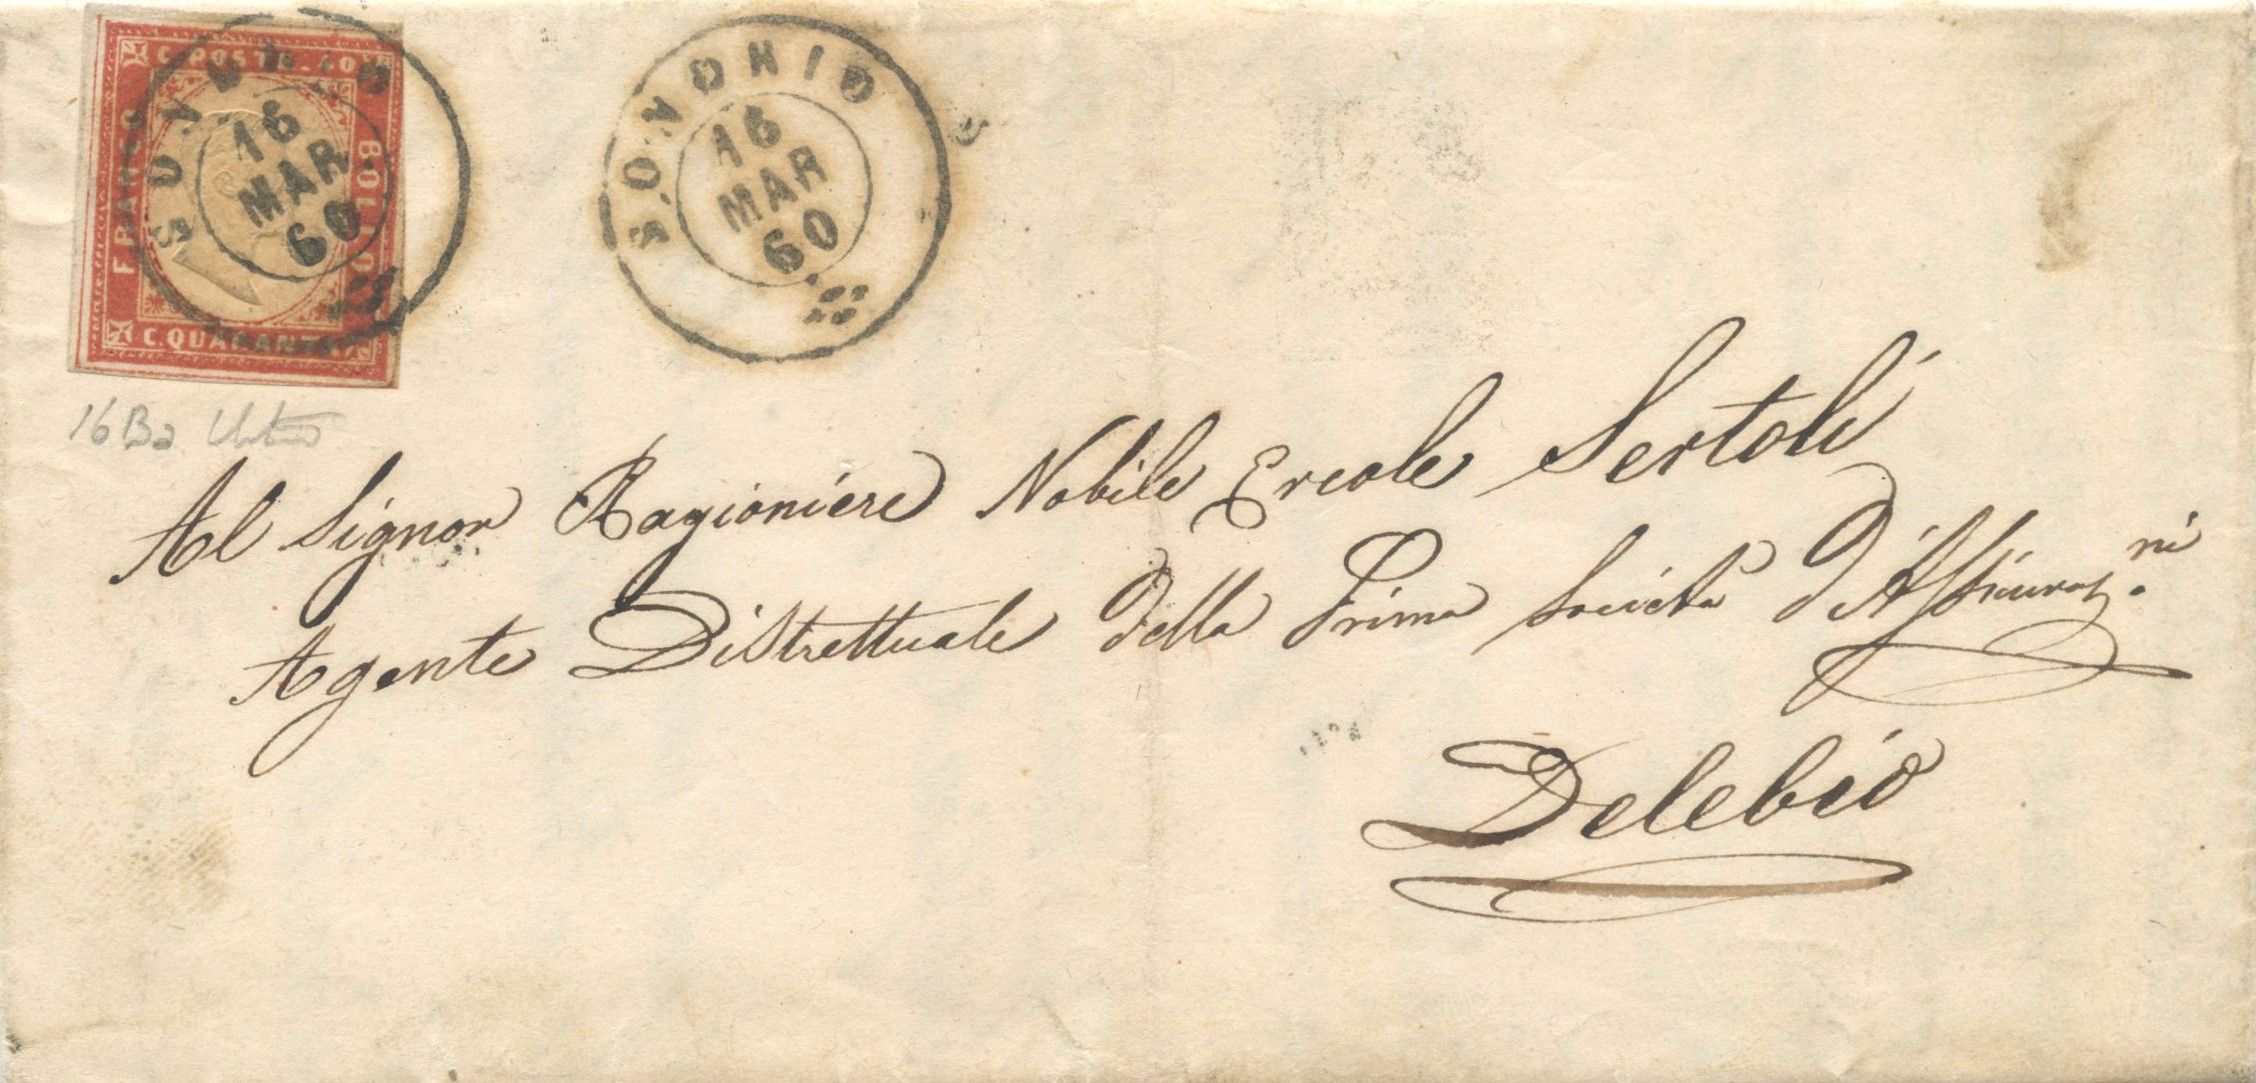 C. POSTE. 40
FRANCO
BOLLO
C. QUARANTA
SONDRIO
16
MAR
60
SONDRIO
16
MAR
60
16Ba
Al Signor Ragioniere Nobile Ercole Sertoli
Agente Distrettuale della Prima Società d'Assicuraz.ni
Delebio